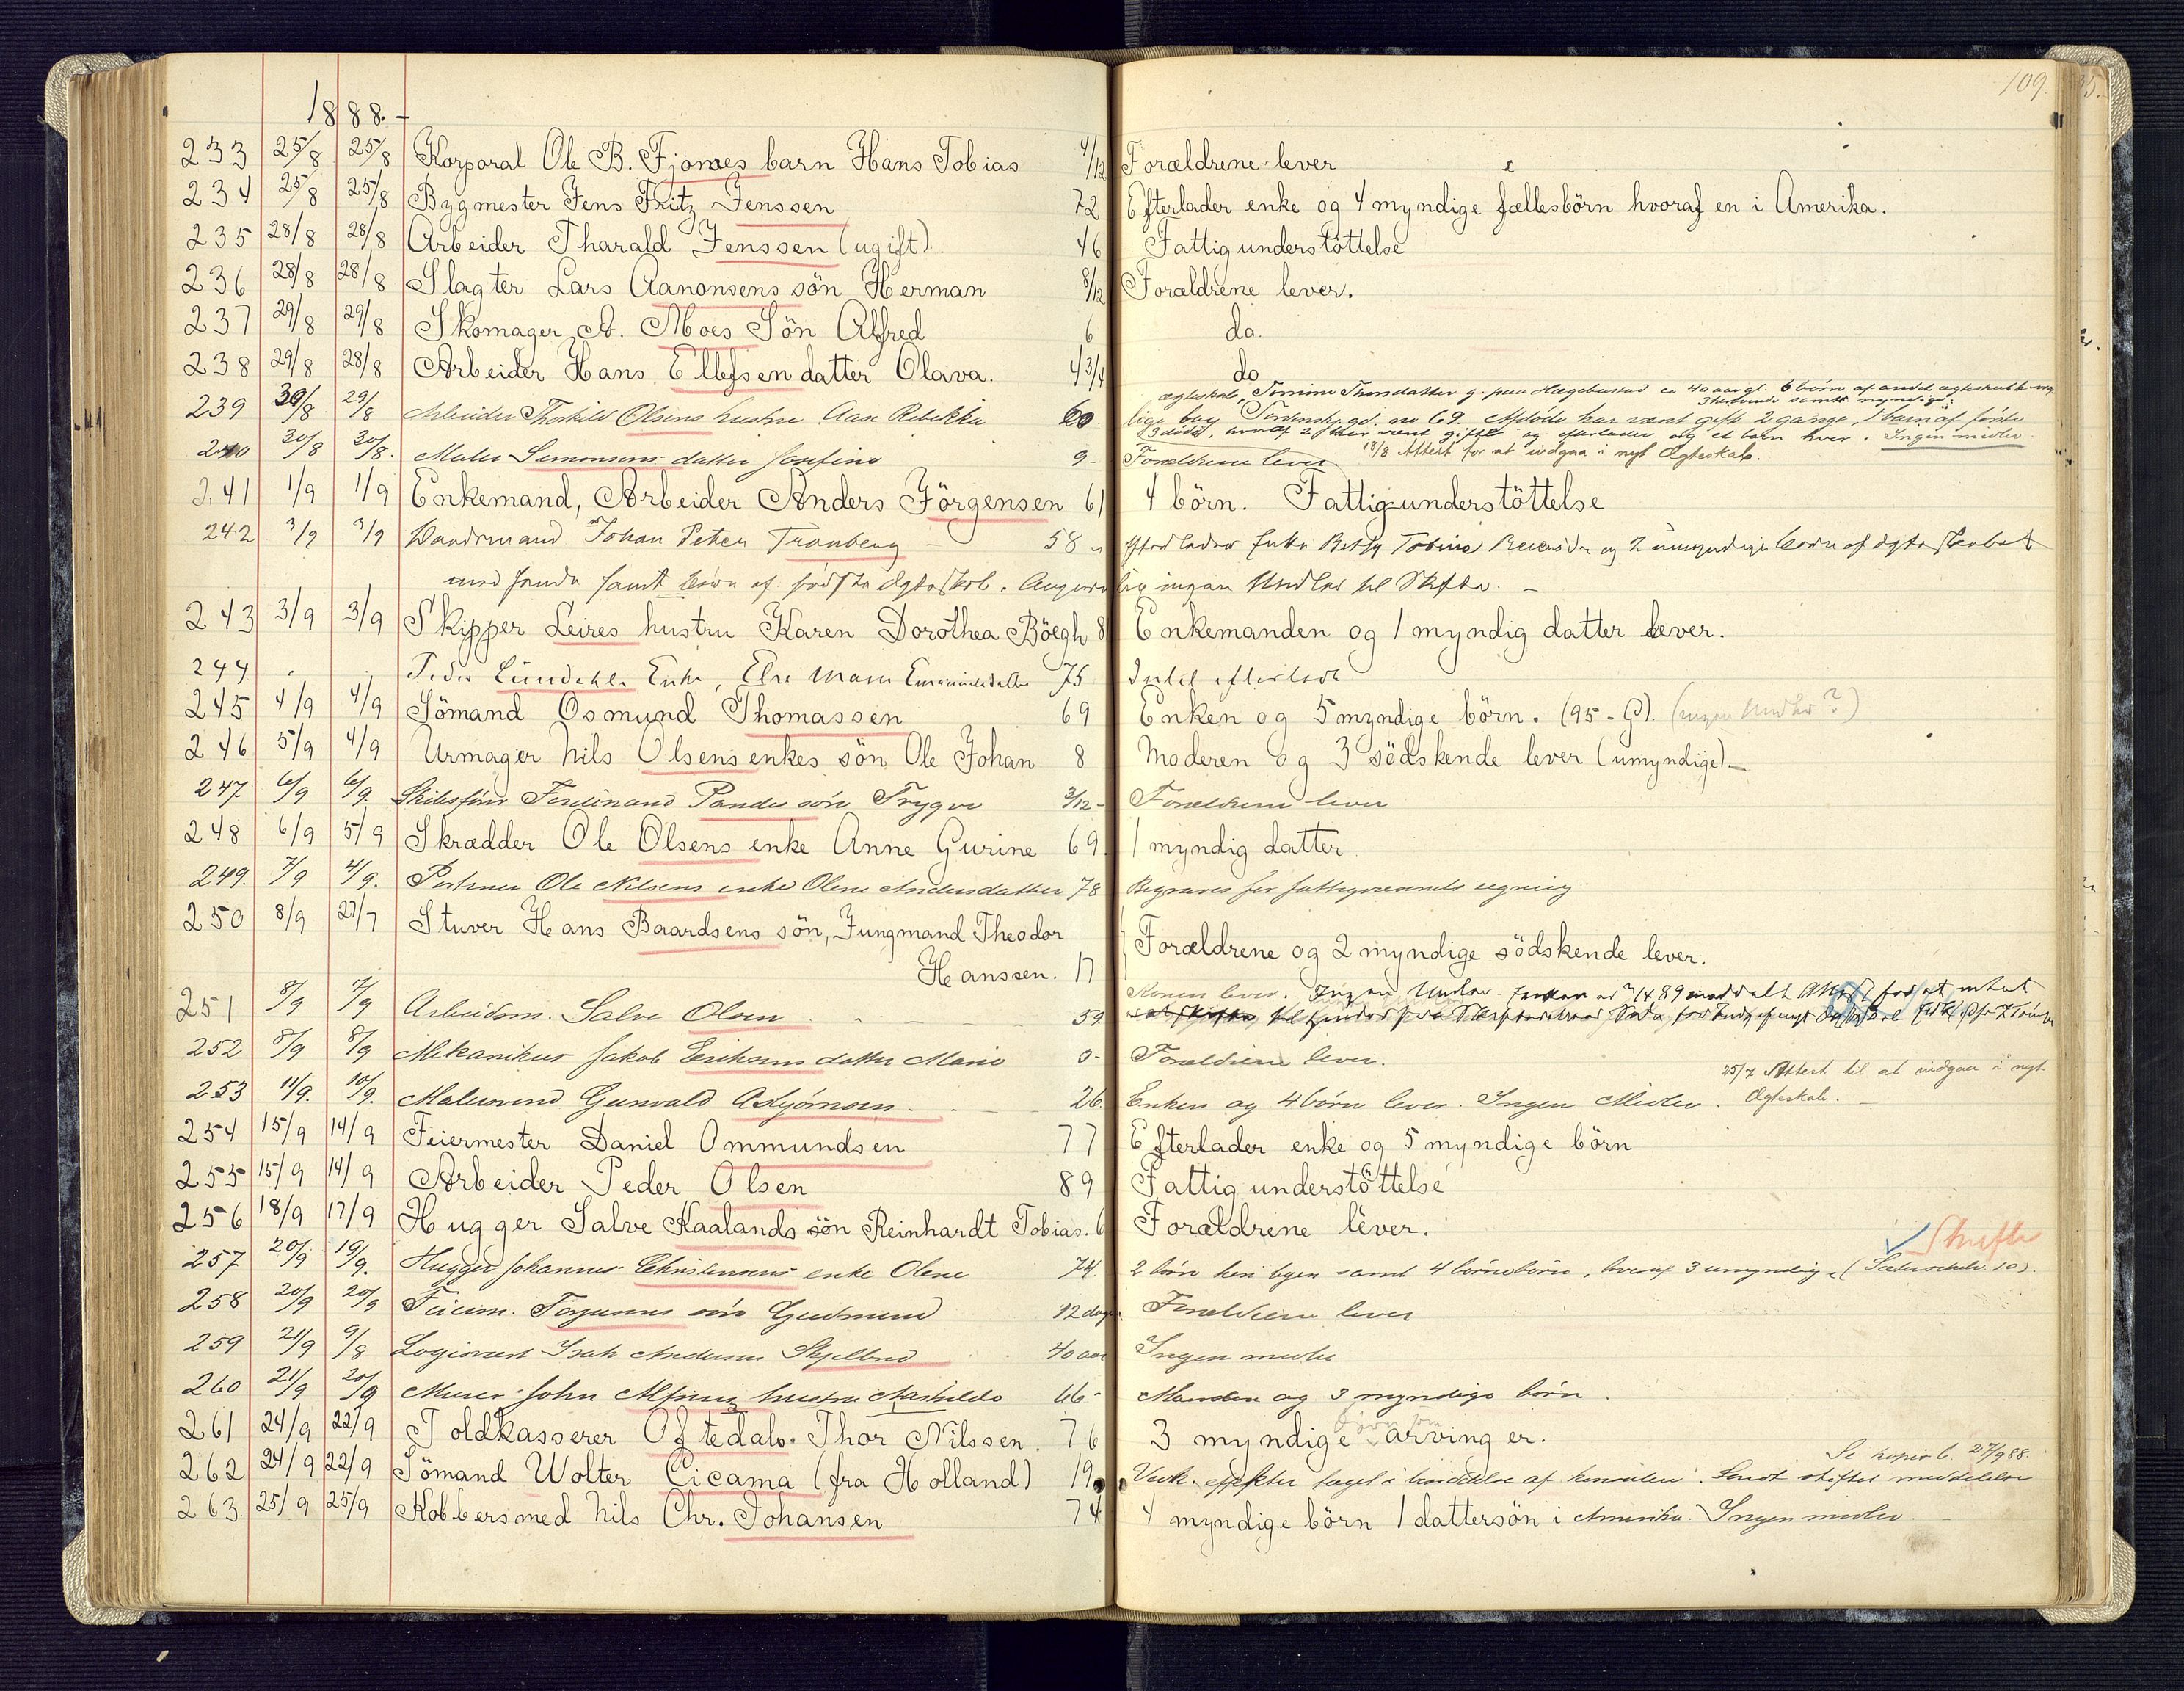 109.
1888.-
233 25/8 25/8 Korporal Ole B. Fjones barn Hans Tobias 4/12 Forældrene lever
234 25/8 25/8 Bygmester Jens Fritz Jenssen 72 Efterlader enke og 4 myndige fællesbörn hvoraf en i Amerika.
235 28/8 28/8 Arbeider Tharald Jenssen (ugift) 46 Fattigunderstöttelse
236 28/8 28/8 Slagter Lars Aanonsens sön Herman 8/12 Forældrene lever.
237 29/8 29/8 Skomager A. Moes Sön Alfred 6 do.
238 29/8 28/8 Arbeider Hans Ellefsen datter Olava. 4 3/4 do
ægteskab, Tomine Thorsdatter g. paa Hægebostad ca 40 aar gl. 6 börn af andet ægteskab
239 30/8 29/8 Arbeider Thorkild Olsens hustru Aase Rebekka 60 gd. no 69. Afdöde har været gift 2 gange, 1 barn af förste
3 döde, hvoraf 2 har været gifte og efterlader sig et barn hver. Ingen midler
240 30/8 30/8. Maler Simonsens datter Josefine 9- Forældrene lever. 18/8 Attest for at indgaa i nyt Ægteskab.
241 1/9 1/9 Enkemand, Arbeider Anders Jörgensen 61 4 börn. Fattigunderstöttelse
242 3/9 3/9 Vandmand Johan Peter Tranberg 58 Efterlader Enke Betsy Tobine og 2 umyndige börn af ægteskabet
med hende samt börn af förste ægteskab. ingen Midler til Skifte. -
243 3/9 3/9 Skipper Leires hustru Karen Dorothea Böegh 8 Enkemanden og 1 myndig datter lever.
244 . . Peder Lundahls Enke, Else Marie 75 Intet efterladt
245 4/9 4/9 Sömand Osmund Thomassen 69 Enken og 5 myndige börn. (95 - G). (ingen Midler?)
246 5/9 4/9 Urmager Nils Olsens enkes sön Ole Johan 8 Moderen og 3 södskende lever (umyndige).-
247. 6/9 6/9. Skibsförer Ferdinand Pandes sön Trygve 3/12- Forældrene lever
248 6/9 5/9 Skrædder Ole Olsens enke Anne Gurine 69. 1 myndig datter
249. 7/9 4/9. Ole Nilsens enke Olene Andersdatter 78 Begraves for fattigvæsenets regning
250 8/9 27/7 Stuver Hans Baardsens sön, Jungmand Theodor
Hanssen. 17 Forældrene og 2 myndige södskende lever.
251 8/9 7/9 Arbeidsm. Salve Olsen 59. Konen lever. Ingen Midler.
252 8/9 8/9 Mekanikus Jakob Eriksens datter Marie 0- Forældrene lever.
25/7 Attest til at indgaa i nyt
253 11/9. 10/9. Malersvend Gunvald Asbjörnsen 26. Enken og 4 börn lever. Ingen Midler. Ægteskab. -
254 15/9 14/9 Feiermester Daniel Ommundsen 77 Efterlader enke og 5 myndige börn
255 15/9 14/9 Arbeider Peder Olsen 89 Fattigunderstöttelse
256 18/9 17/9 Hugger Salve Kaalands sön Reinhardt Tobias. 6 Forældrene lever.
Skifte
257 20/9 19/9. Hugger Johannes Christensens enke Olene 74. 2 börn samt 4 börnebörn, hvoraf 3 umyndig.
258 20/9 20/9 Feierm. Torjusens sön Gudmund 12 dage. Forældrene lever
259 21/9 9/8 Logivært Isak Andersen Skjelbred 40 aar Ingen midler
260 21/9 20/9 Murer John hustru Mathilde 66- Manden og 3 myndige börn.
261 24/9 22/9 Toldkasserer Oftedals. Thor Nilssen. 76 3 myndige arvinger.
Se kopib. 27/9 88.
262 24/9 22/9 Sömand Wolter Cicama (fra Holland) 19 effekter taget i besiddelse af konsulen. Sendt skiftet meddelelse
263 25/9 25/9 Kobbersmed Nils Chr. Johansen 74 4 myndige börn 1 dattersön i Amerika. Ingen midler.